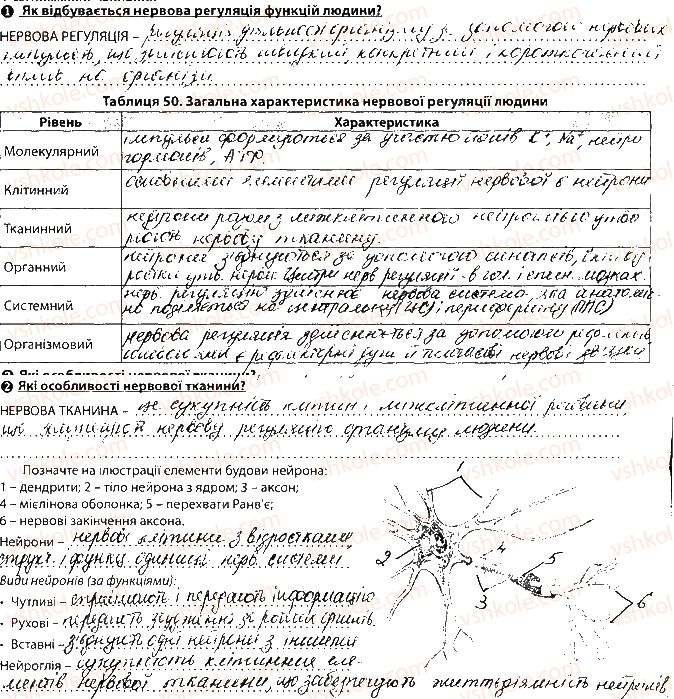 ❶ Як відбувається нервова регуляція функцій людини?
НЕРВОВА РЕГУЛЯЦІЯ – регуляція діяльності організму з допомогою нервових
імпульсів, що здійснюють швидкий, конкретний і короткочасний
вплив на організм
Таблиця 50. Загальна характеристика нервової регуляції людини
Рівень Характеристика
Молекулярний імпульси формуються за участю іонів K⁺, Na⁺, нейро
гормонів, АТФ.
Клітинний основними елементами регуляції нервової є нейрони
Тканинний нейрони разом з міжклітинного нейроглією утво
рюють нервову тканину.
Органний нейрони з'єднуються за допомогою синапсів,
центри нерв регуляції - в гол. і спин. мозках.
Системний нерв. регуляцію здійснює нервова система, яка анатоміч
но поділяється на центральну (ЦНС) і периферичну (ПНС)
Організмовий нервова регуляція здійснюється за допомогою рефлексів,
є рефлекторні дуги й нервові
❶ Які особливості нервової тканини?
❷ Які особливості нервової тканини?
НЕРВОВА ТКАНИНА – це сукупність клітин і міжклітинної речовини,
що нервову регуляцію організму людини.
Позначте на ілюстрації елементи будови нейрона:
1 – дендрити; 2 – тіло нейрона з ядром; 3 – аксон;
4 – мієлінова оболонка; 5 – перехвати Ранв'є;
6 – нервові закінчення аксона.
Нейрони – нервові клітини з відростками,
структ. і функц. одиниці нерв. системи
Види нейронів (за функціями):
• Чутливі – сприймають і передають інформацію
• Рухові – передають
• Вставні – з'єднують одні нейрони з іншими
Нейроглія – сукупність клітинних еле-
ментів нервової тканини, що забезпечують життєдіяльність нейронів
1
2
3
4
5
6
vshkole.com